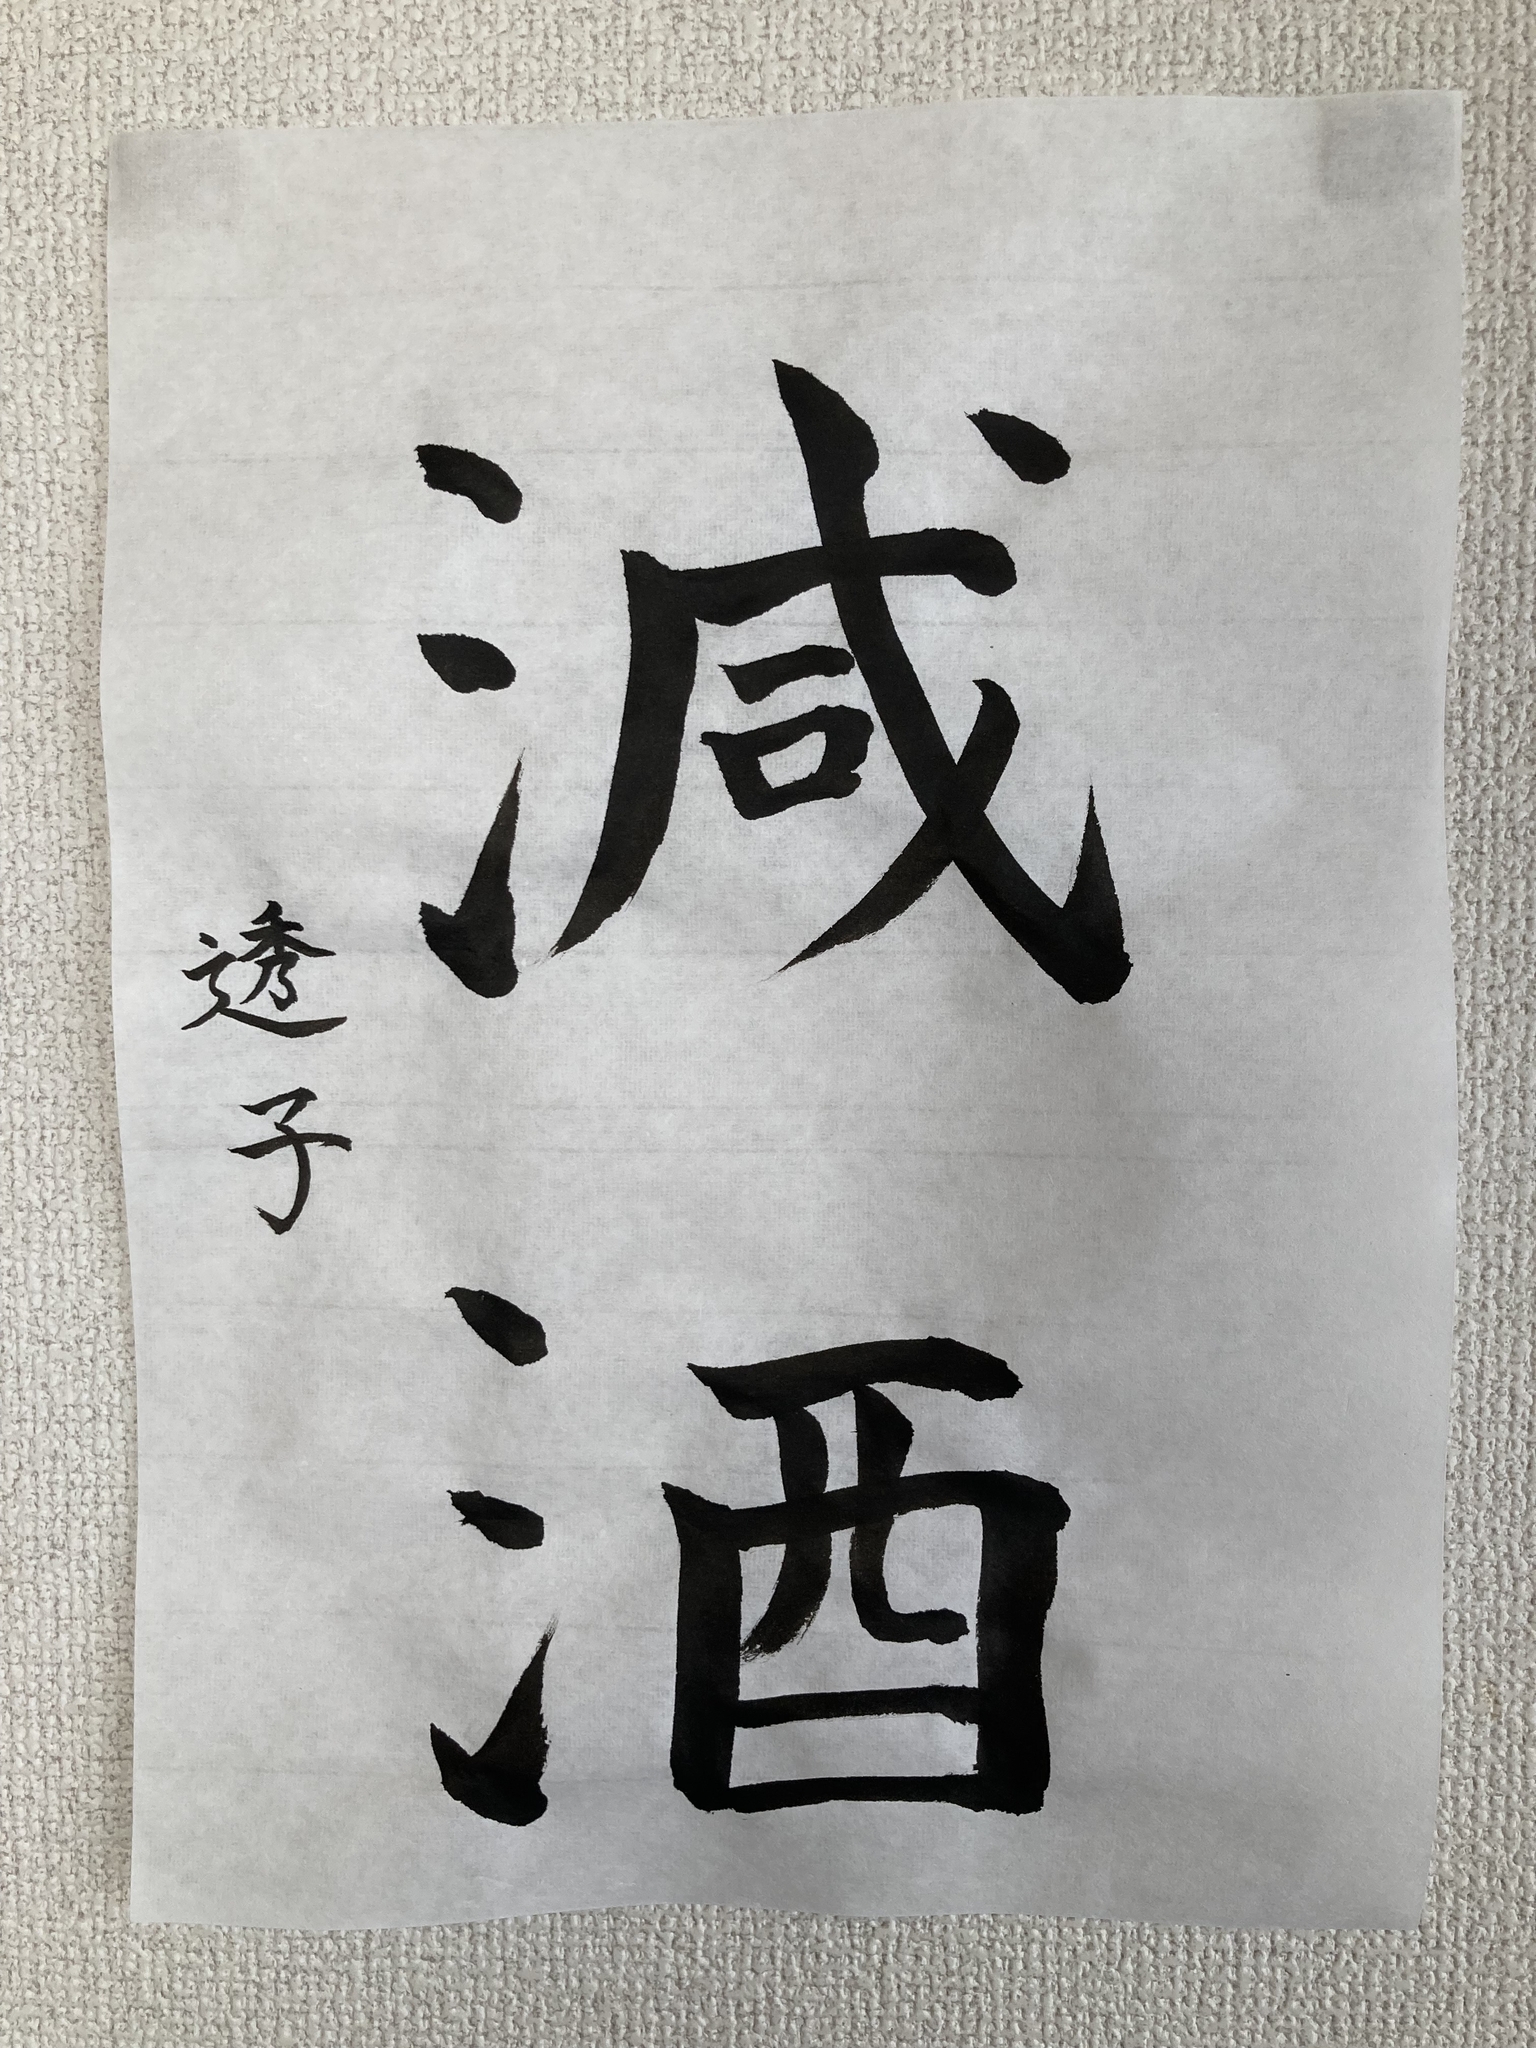 減酒
透子